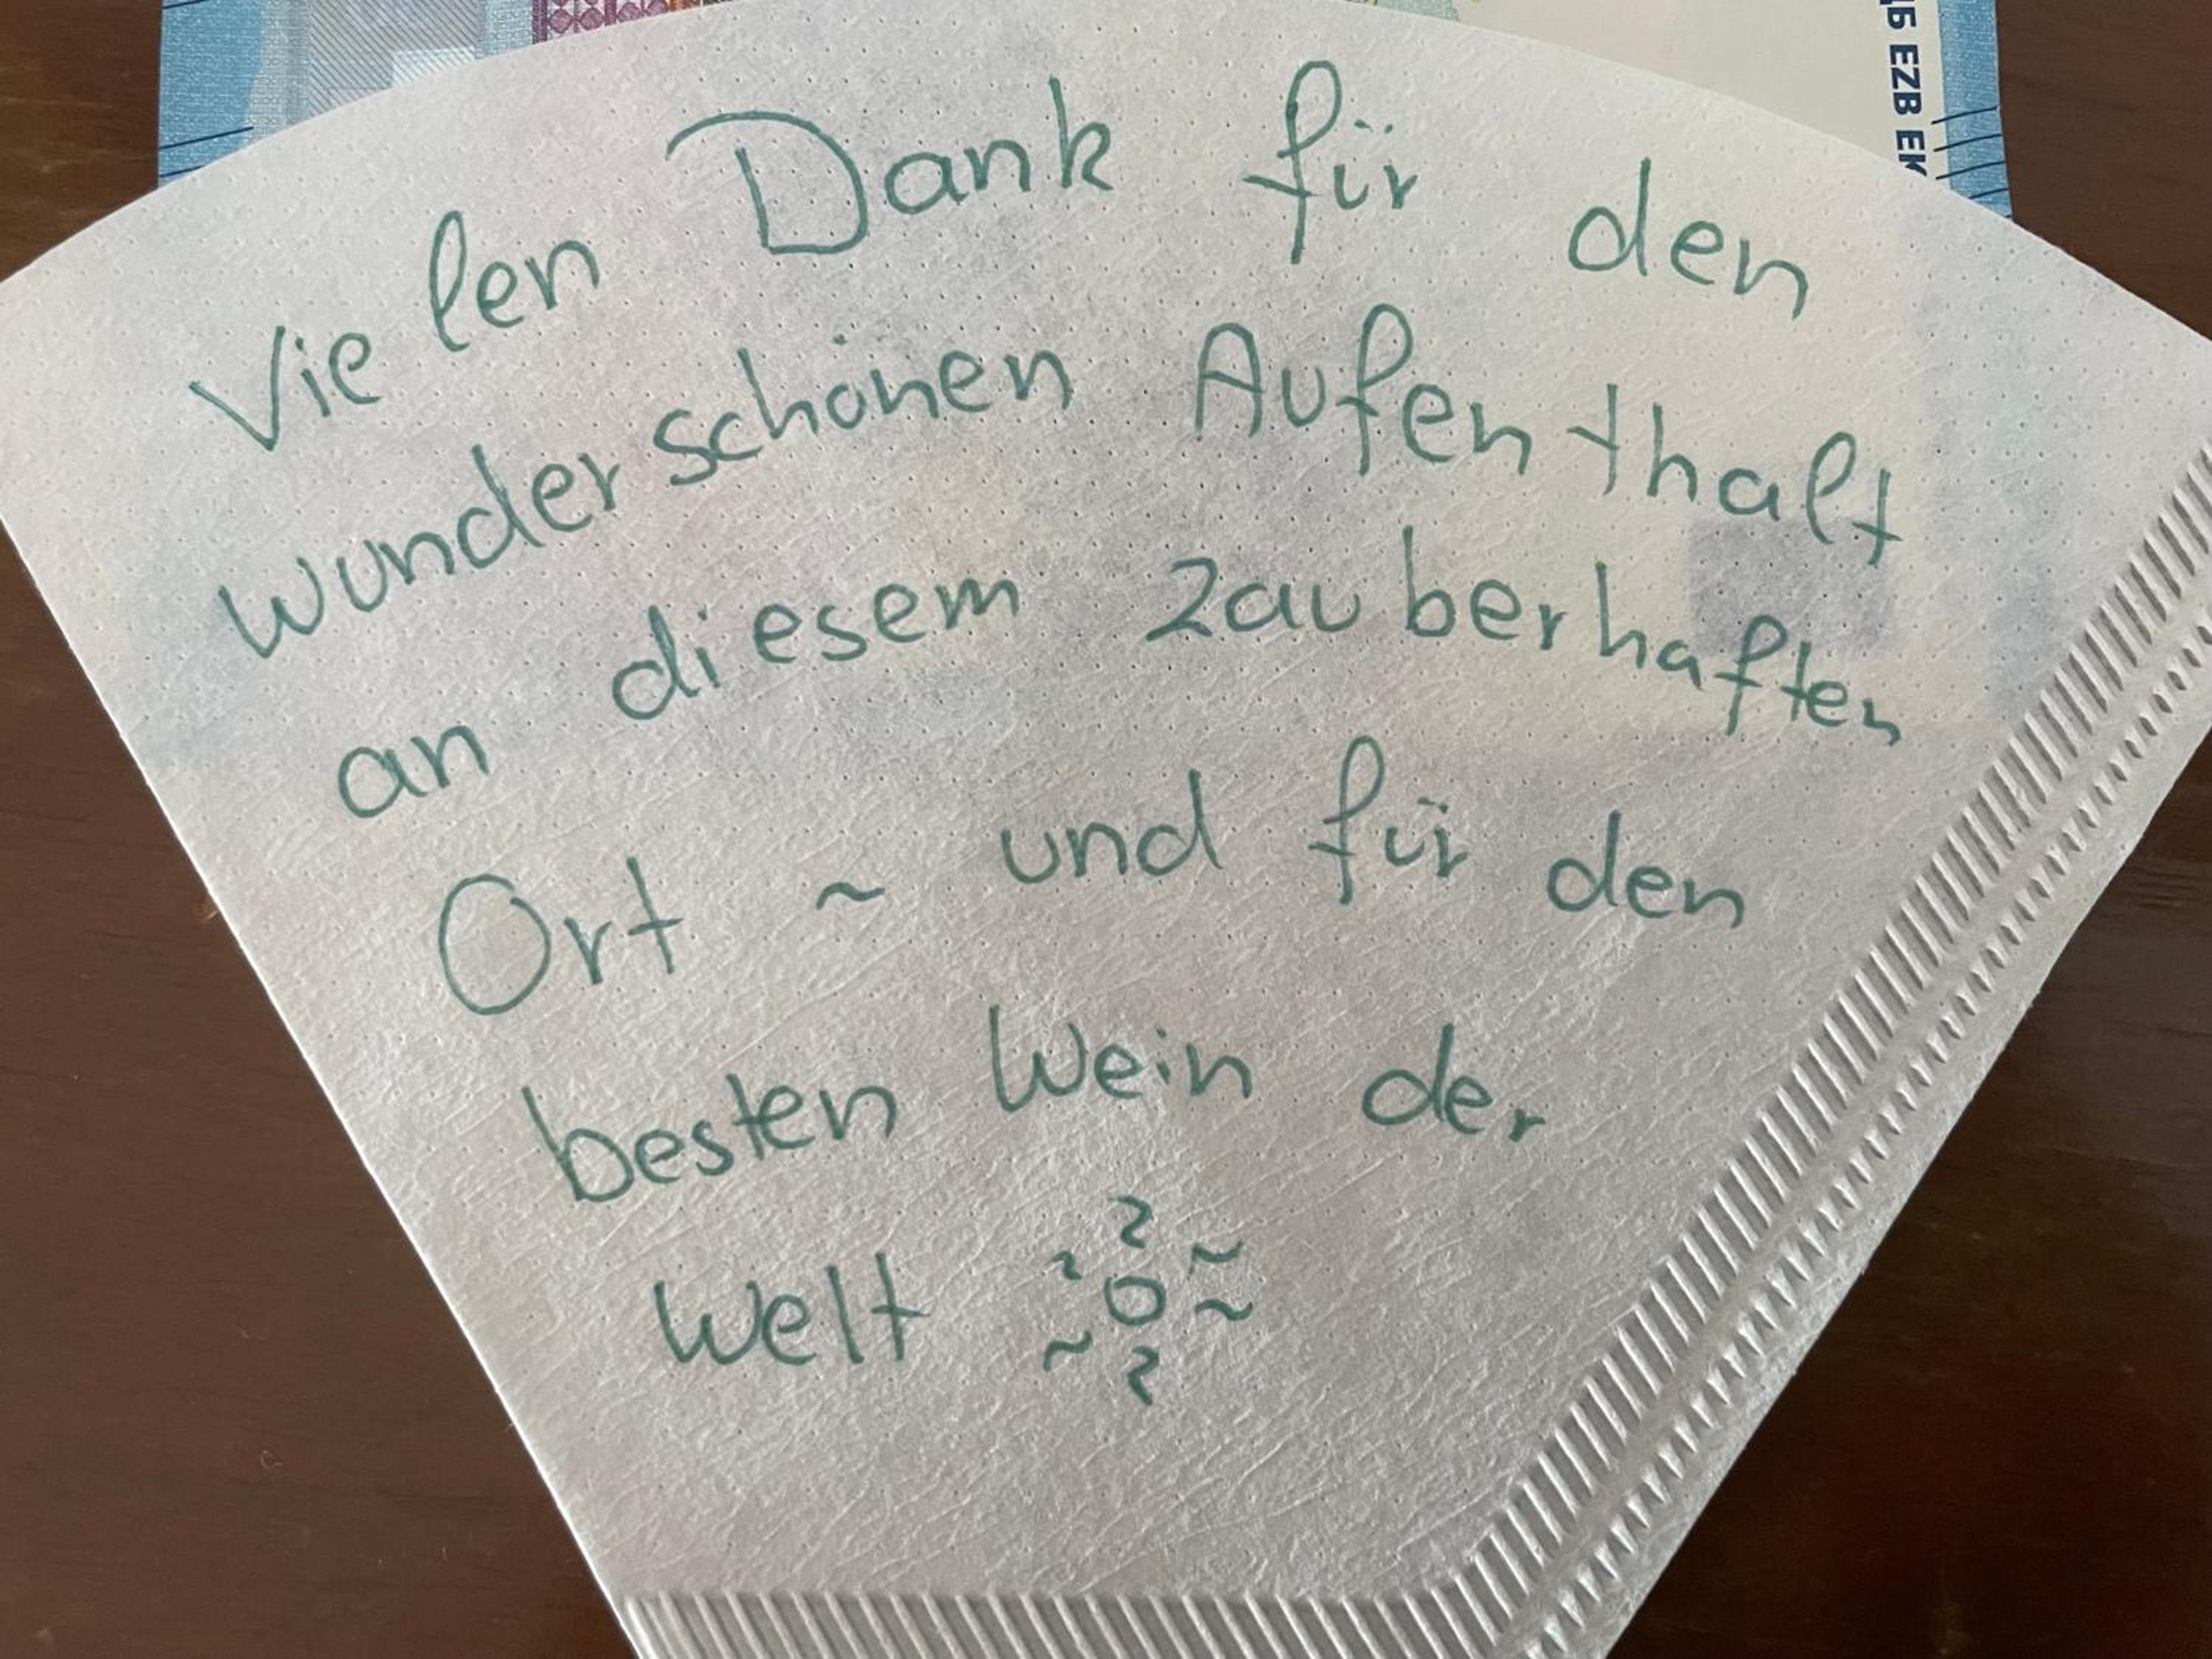 ДБ EZB EK
Vielen Dank für den
wunderschönen Aufenthalt
an diesem zauberhaften
Ort ~ und für den
besten Wein der
Welt